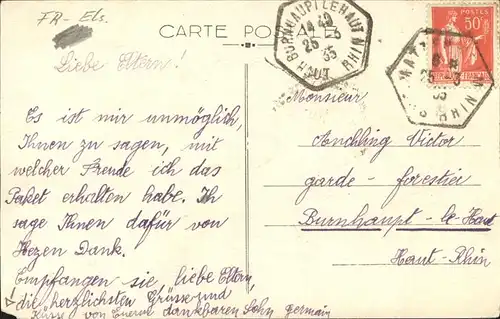 FR-Els.
CARTE POSTALE
BURNHAUPT LE HAUT
14 40
25 -3
35
HAUT RHIN
50c
25 -3
35
RHIN
Liebe Eltern!
Es ist mir unmöglich,
Ihnen zu sagen, mit
welcher Freude ich das
Paket erhalten habe. Ich
sage Ihnen dafür von
Herzen Dank.
Empfangen sie, liebe Eltern,
die herzlichsten Grüsse und
Küsse von Euerm dankbaren Sohn Germain
Monsieur
Anchling Victor
garde-forestier
Burnhaupt-le-Haut
Haut-Rhin